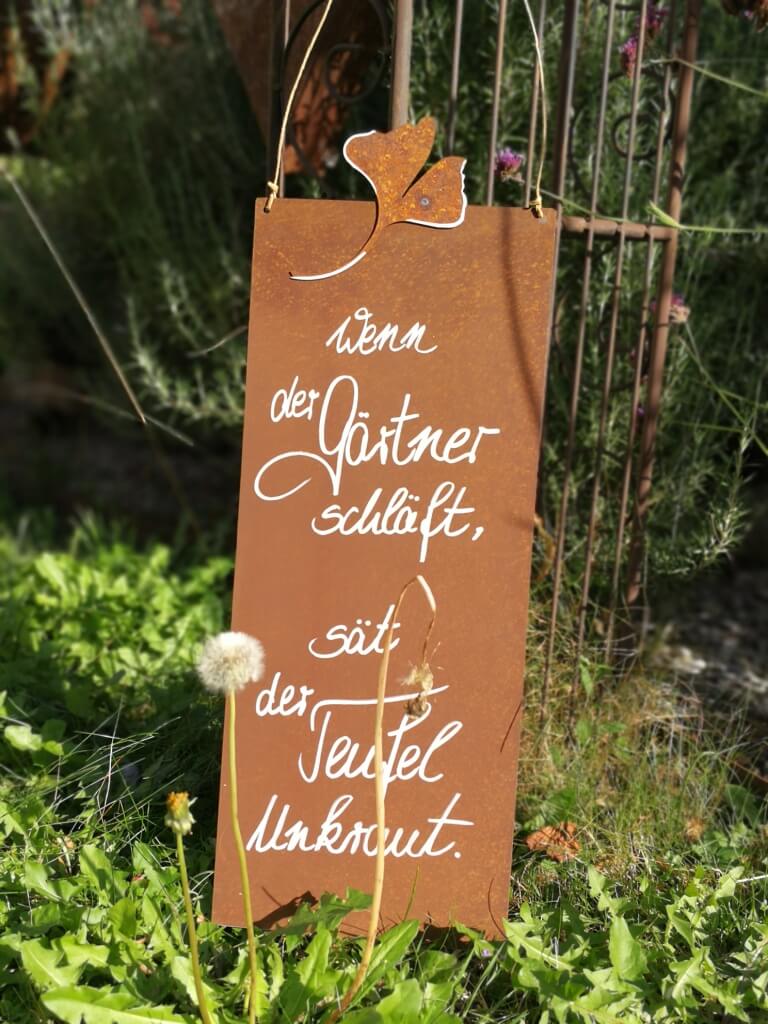 Wenn
der Gärtner
schläft,
sät
der Teufel
Unkraut.